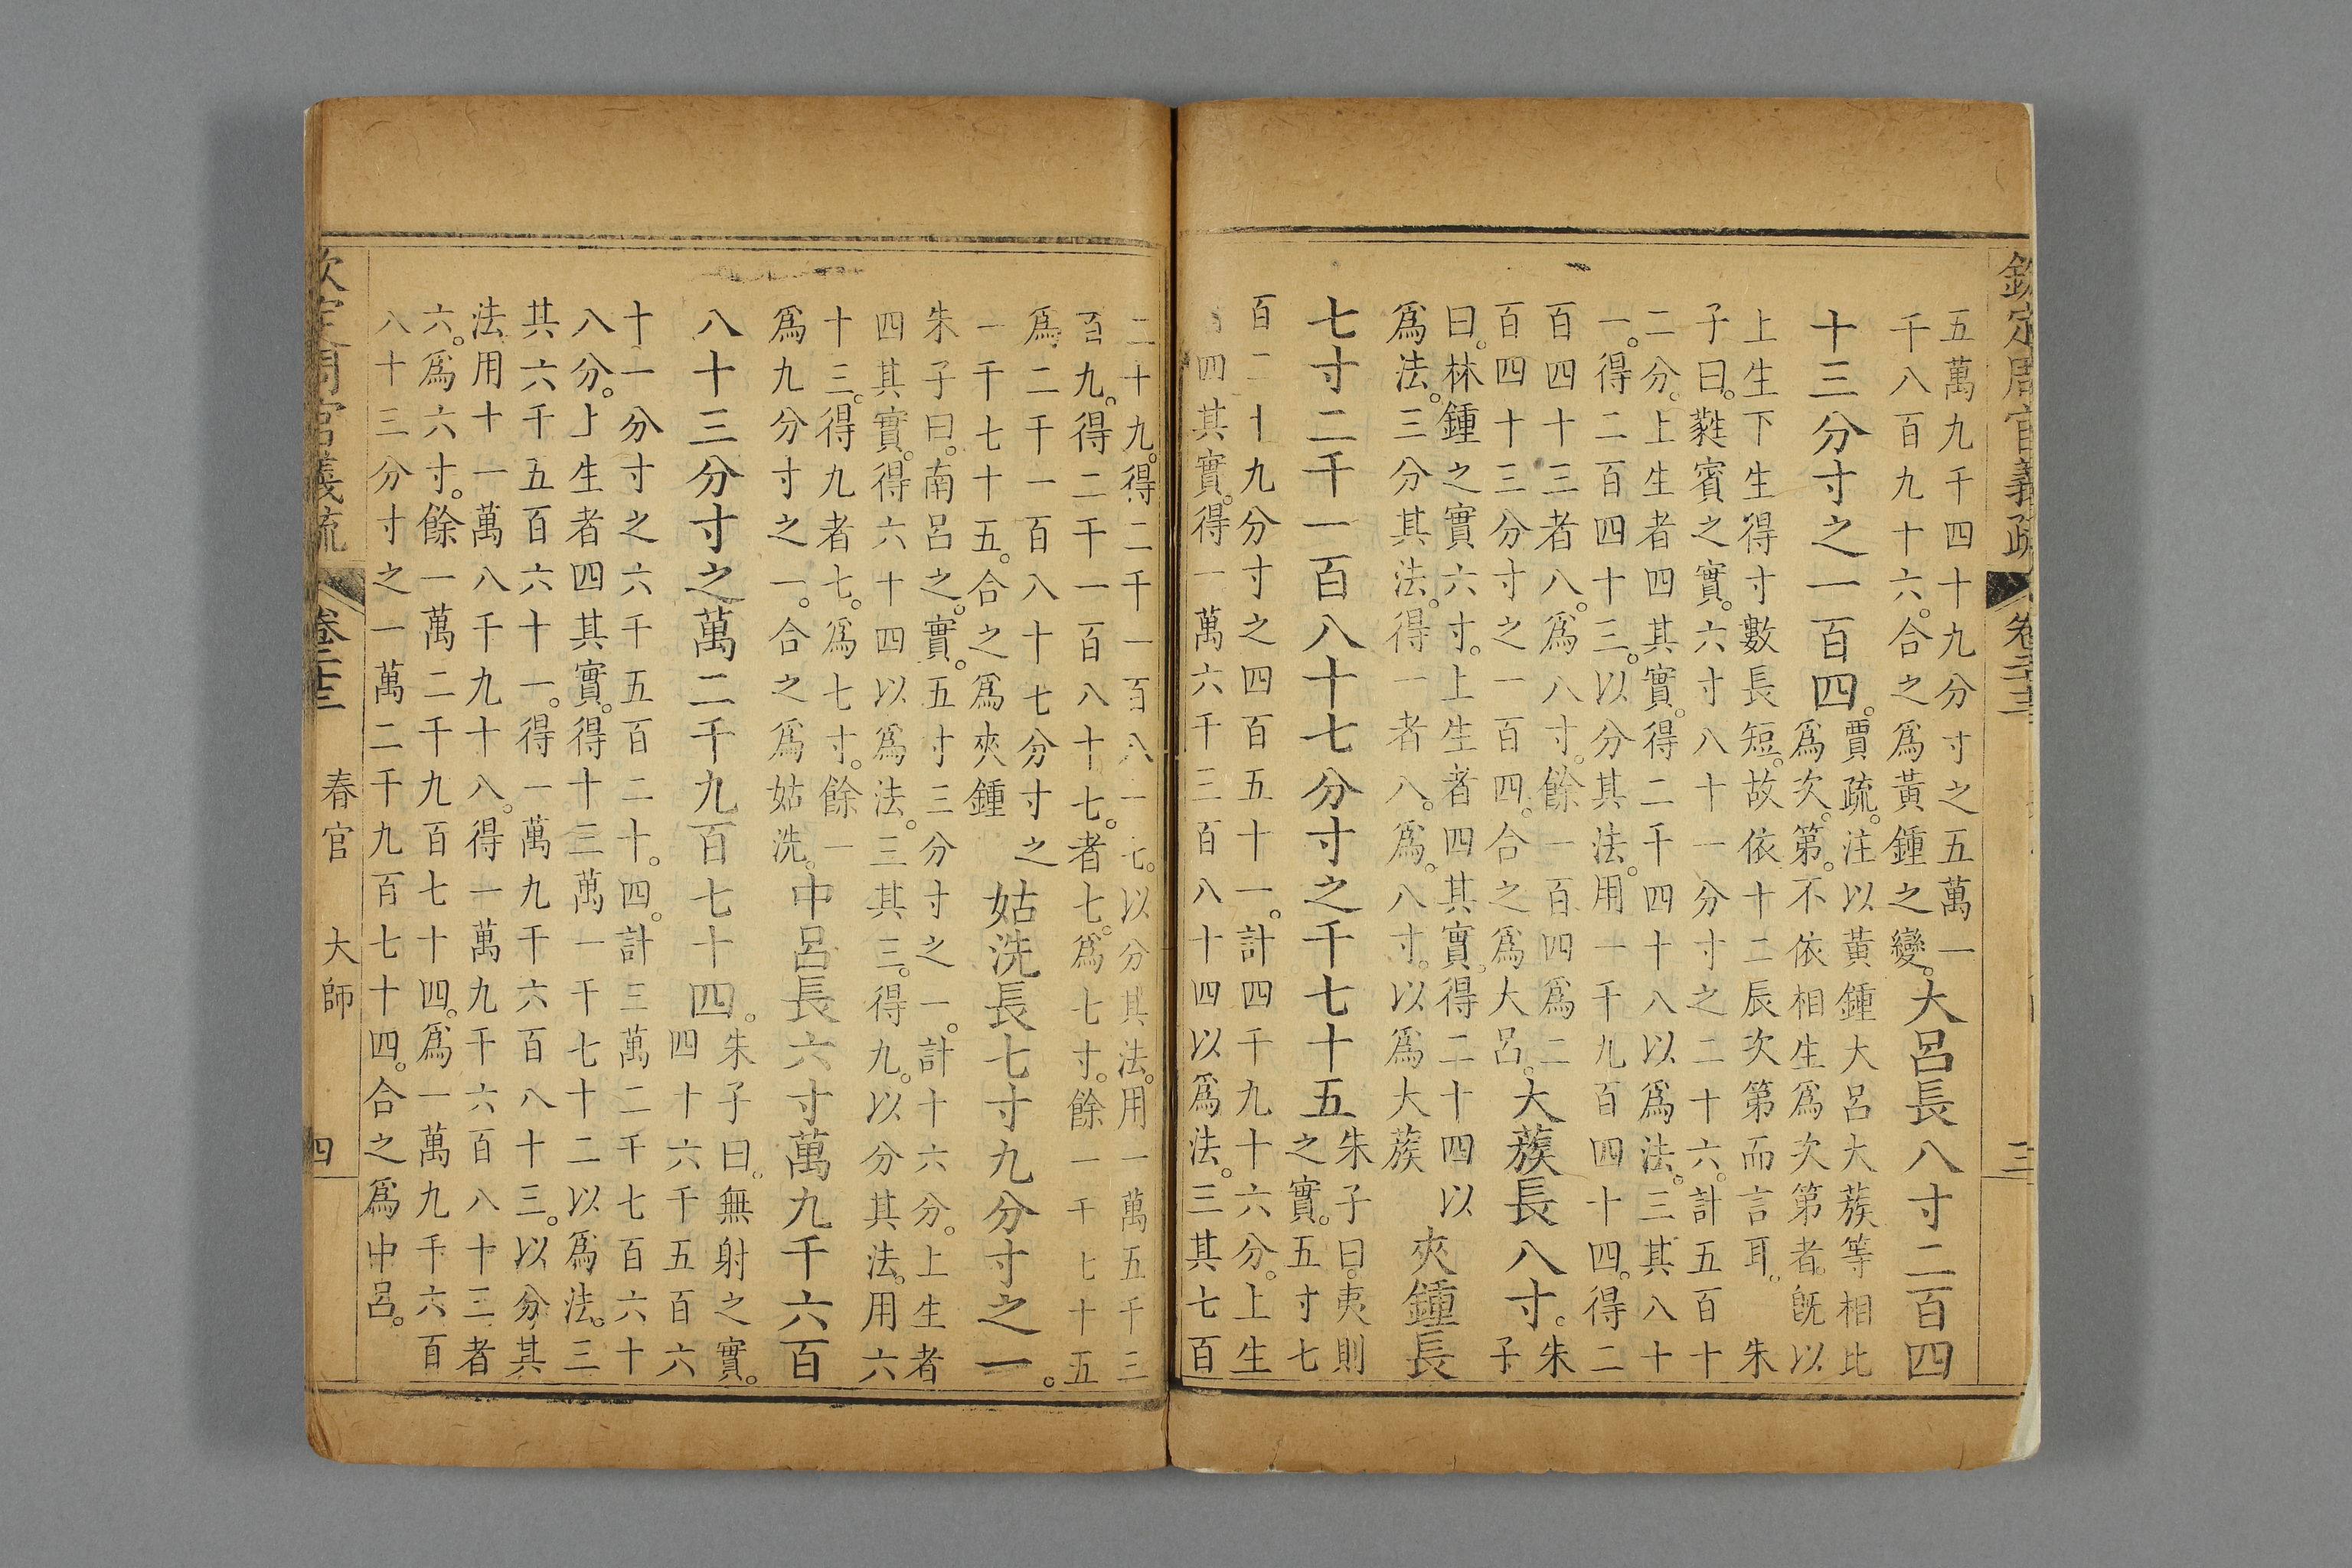 欽定周官義疏 卷二十三 三
五萬九千四十九分寸之五萬一
千八百九十六。合之爲黃鍾之變。
大呂長八寸二百四
十三分寸之一百四。
賈疏。注以黃鍾大呂大蔟等相比
爲次。第。不依相生爲次第者。旣以
上生下生得寸數長短。故依十二辰次第而言耳。 朱
子曰。蕤賓之實。六寸八十一分寸之二十六。計五百十
二分。上生者四其實。得二千四十八以爲法。三其八十
一。得二百四十三。以分其法。用一千九百四十四。得二
百四十三者八。爲八寸。餘一百四爲二
百四十三分寸之一百四。合之爲大呂。
大蔟長八寸。
朱
子
曰。林鍾之實六寸。上生者四其實。得二十四以
爲法。三分其法。得一者八。爲。八寸。以爲大蔟
夾鍾長
七寸二千一百八十七分寸之千七十五
朱子曰。夷則
之實。五寸七
百二十九分寸之四百五十一。計四千九十六分。上生
四其實。得一萬六千三百八十四以爲法。三其七百
二十九。得二千一百八十七。以分其法。用一萬五千三
百九。得二千一百八十七。者七。爲七寸。餘一千七十五
爲二千一百八十七分寸之
一千七十五。合之爲夾鍾
姑洗長七寸九分寸之一。
朱子曰。南呂之。實。五寸三分寸之一。計十六分。上生者
四其實。得六十四以爲法。三其三。得九。以分其法。用六
十三。得九者七。爲七寸。餘一
爲九分寸之一。合之爲姑洗。
中呂長六寸萬九千六百
八十三分寸之萬二千九百七十四。
朱子曰。無射之實。
四十六千五百六
十一分寸之六千五百二十。四。計三萬二千七百六十
八分。上生者四其實。得十三萬一千七十二以爲法。三
其六千五百六十一。得一萬九千六百八十三。以分其
法用十一萬八千九十八。得一萬九千六百八十三者
六。爲六寸。餘一萬二千九百七十四。爲一萬九千六百
八十三分寸之一萬二千九百七十四。合之爲中呂。
欽定周官義疏 卷二十三 春官 大師 四